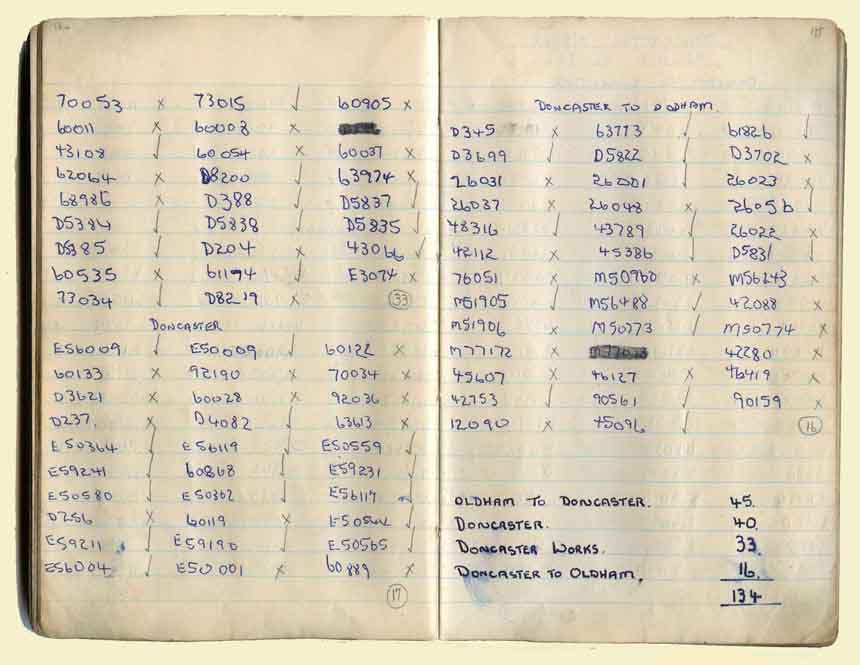 70053 x 73015 ✓ 60905 x
60011 x 60008 x
43108 ✓ 60054 x 60037 x
62064 x D8200 ✓ 63974 x
68986 x D388 ✓ D5837 ✓
D5384 ✓ D5838 ✓ D5835 ✓
D5385 ✓ D204 x 43066 ✓
60535 x 61194 ✓ E3074 x
73034 ✓ D8219 x 33
DONCASTER
E56009 ✓ E50009 ✓ 60122 x
60133 x 92190 x 70034 x
D3621 x 60028 x 92036 x
D237. x D4082 ✓ 63613 x
E50364 ✓ E56119 ✓ E50559 ✓
E59241 ✓ 60868 ✓ E59231 ✓
E50580 ✓ E50362 ✓ E56117
D256 x 60119 x ✓
E59211 ✓ E59190 ✓ E50565 ✓
E56004 ✓ E50001 x 60889 x
17
DONCASTER TO OLDHAM.
D345 x 63773 ✓ 61826 ✓
D3699 ✓ D5822 ✓ D3702 x
26031 x 26001 ✓ 26023 x
26037 x 26048 x 26056 ✓
48316 ✓ 43789 ✓ 26022 x
42112 x 45386 ✓ D5831 ✓
76051 x M50960 x M56243 x
M51905 ✓ M56488 ✓ 42088 x
M51906 x M50773 ✓ M50774 x
M77172 x 42280 x
45607 x 46127 x 46419 x
42753 ✓ 90561 ✓ 90159 x
12090 x 45096 ✓ 16
OLDHAM TO DONCASTER. 45.
DONCASTER. 40.
DONCASTER WORKS. 33.
DONCASTER TO OLDHAM. 16.
134